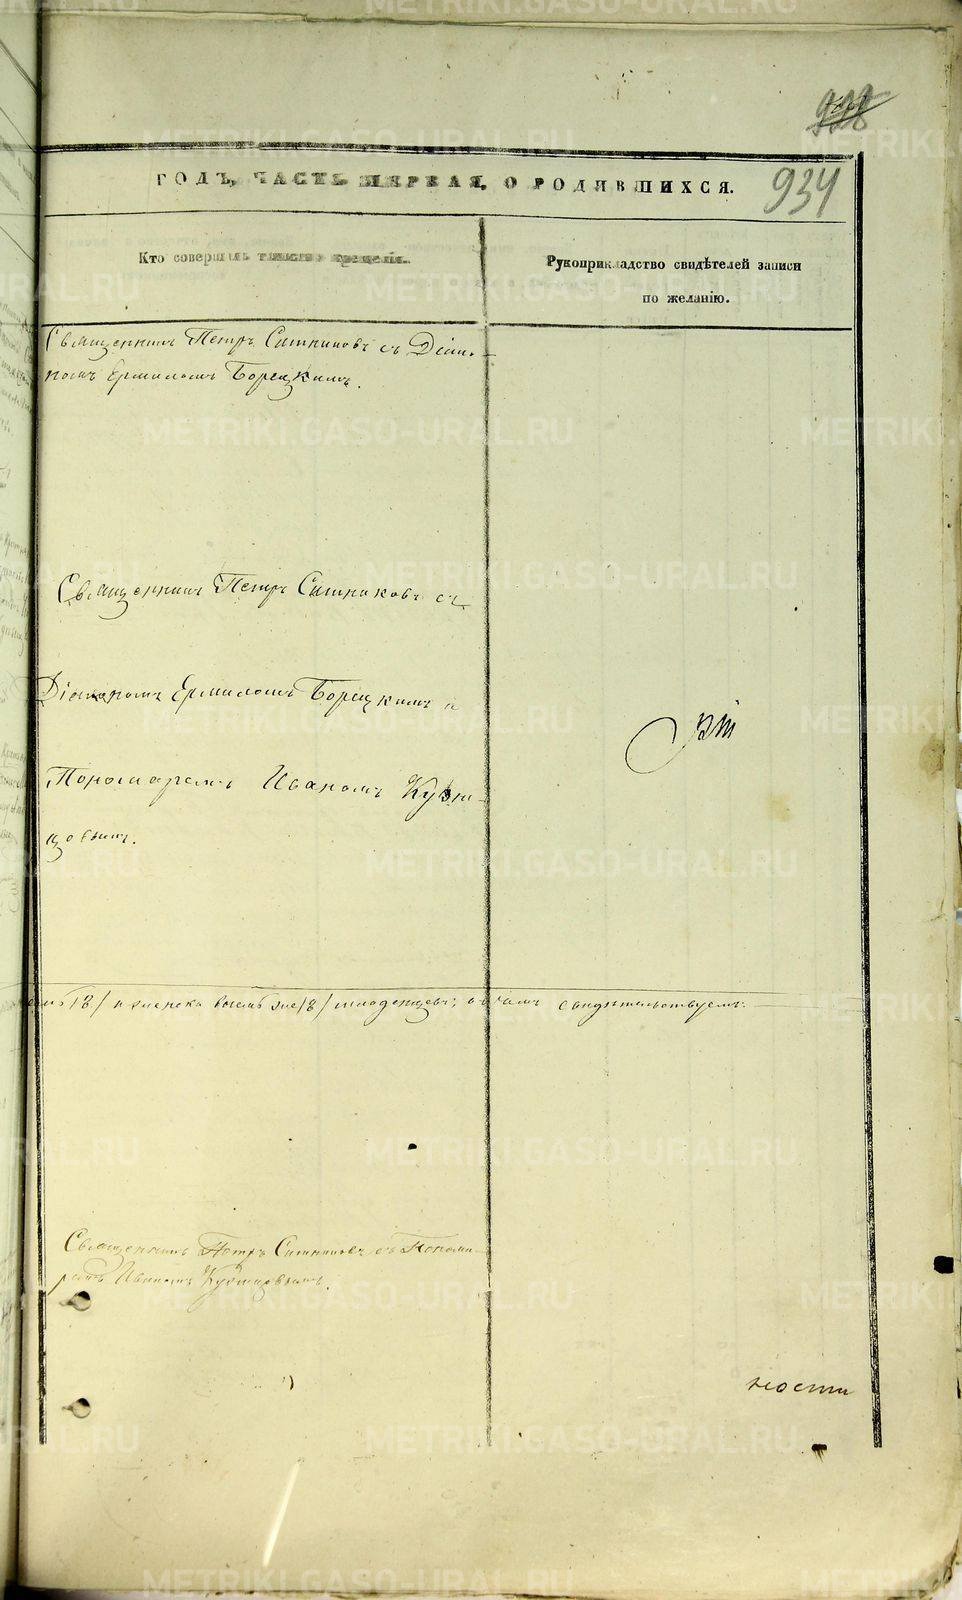 934
ГОДЪ, ЧАСТЬ ПЕРВАЯ, О РОДИВШИХСЯ.
Кто совершалъ таинство крещенія.
Рукоприкладство свидѣтелей записи
по желанію.
Священникъ Петръ Ситниковъ съ Діако-
номъ Ермиломъ Борецкимъ.
Священникъ Петръ Ситниковъ съ
Діакономъ Ермиломъ Борецкимъ и
Пономаремъ Иваномъ Кузне-
цовымъ.
18/ и женска восемь /8/ младенцевъ; въ чемъ свидѣтельствуемъ:
Священникъ Петръ Ситниковъ съ Понома-
ремъ Иваномъ Кузнецовымъ.
ности
METRIKI.GASO-URAL.RU